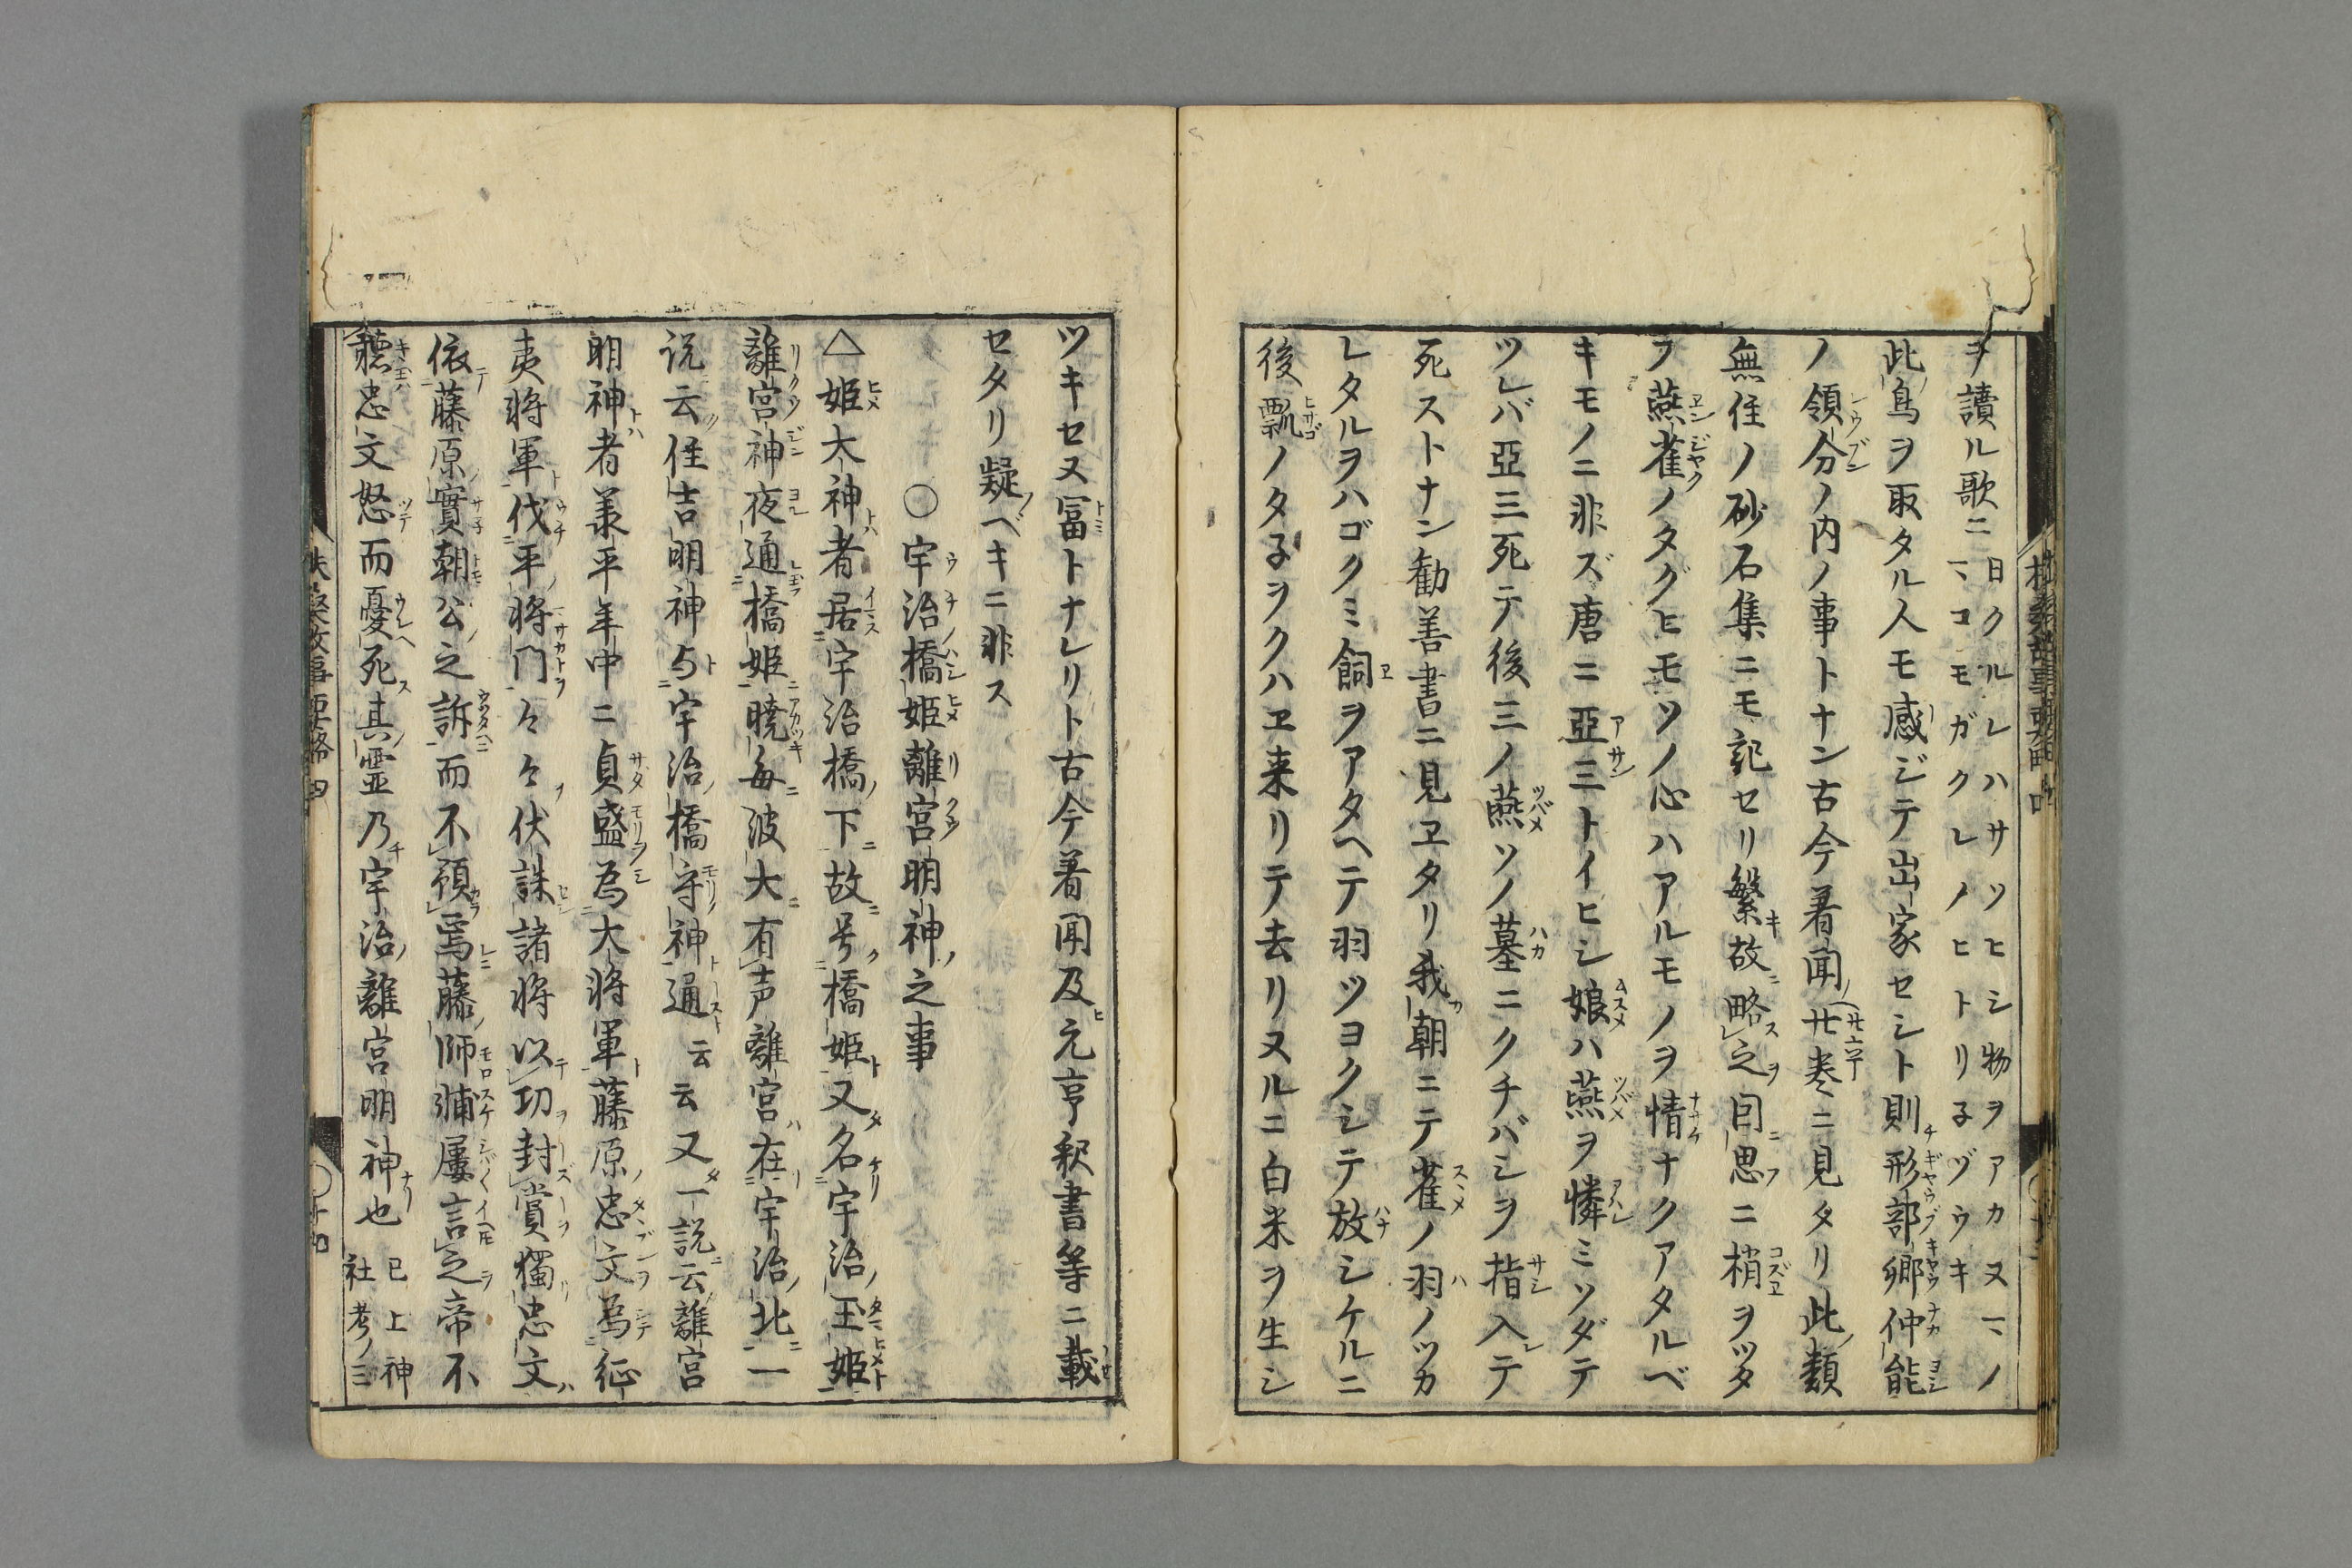 ヲ讀ル歌ニ 日クルレハサソヒシ物ヲアカヌマヽノ
マコモガクレノヒトリ子ヅウキ
此鳥ヲ取タル人モ感ジテ出家セシト則形部卿仲能
ノ領分ノ内ノ事トナン古今著聞廿巻ニ見タリ此類
無住ノ砂石集ニモ記セリ繁故略之因思ニ梢ヲツタ
フ燕雀ノタグヒモソノ心ハアルモノヲ情ナクアタルベ
キモノニ非ズ唐ニ亞三トイヒシ娘ハ燕ヲ憐ミソダテ
ツレバ亞三死テ後三ノ燕ソノ墓ニクチバシヲ指入テ
死ストナン勧善書ニ見ヱタリ我朝ニテ雀ノ羽ノツカ
レタルヲハゴクミ飼ヲアタヘテ羽ツヨクシテ放シケルニ
後瓢ノタ子ヲクハヱ来リテ去リヌルニ白米ヲ生シ
ツキセヌ冨トナレリト古今著聞及元亨釈書等ニ載
セタリ疑ベキニ非ス
〇宇治橋姫離宮明神之事
△姫大神者居宇治橋下故号橋姫又名宇治玉姫
離宮神夜通橋姫暁毎波大有声離宮在宇治北一
説云住吉明神与宇治橋守神通云云又一説云離宮
明神者羕平年中ニ貞盛為大将軍藤原忠文為征
夷将軍伐平将門々々伏誅諸将以功封賞獨忠文
依藤原實朝公之訴而不預焉藤師輔屢言之帝不
聴忠文怒而憂死其霊乃宇治離宮明神也 已上神
社考ノ三
扶桑故事要略 四